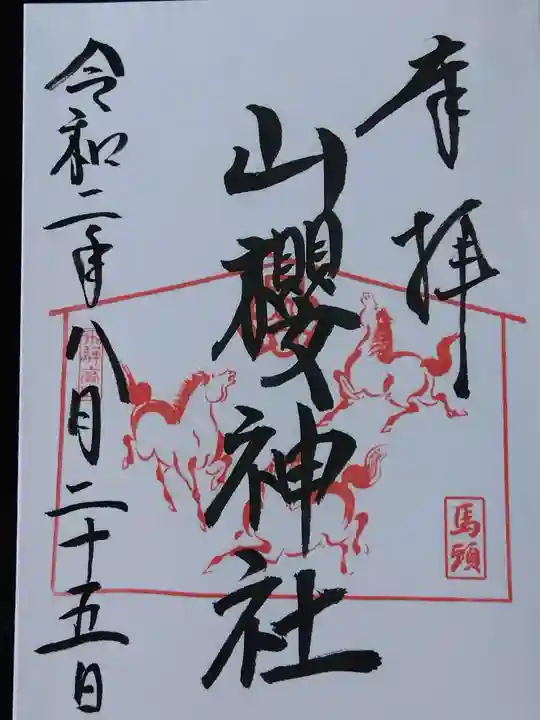 奉拝
山櫻神社
馬頭
令和二年八月二十五日